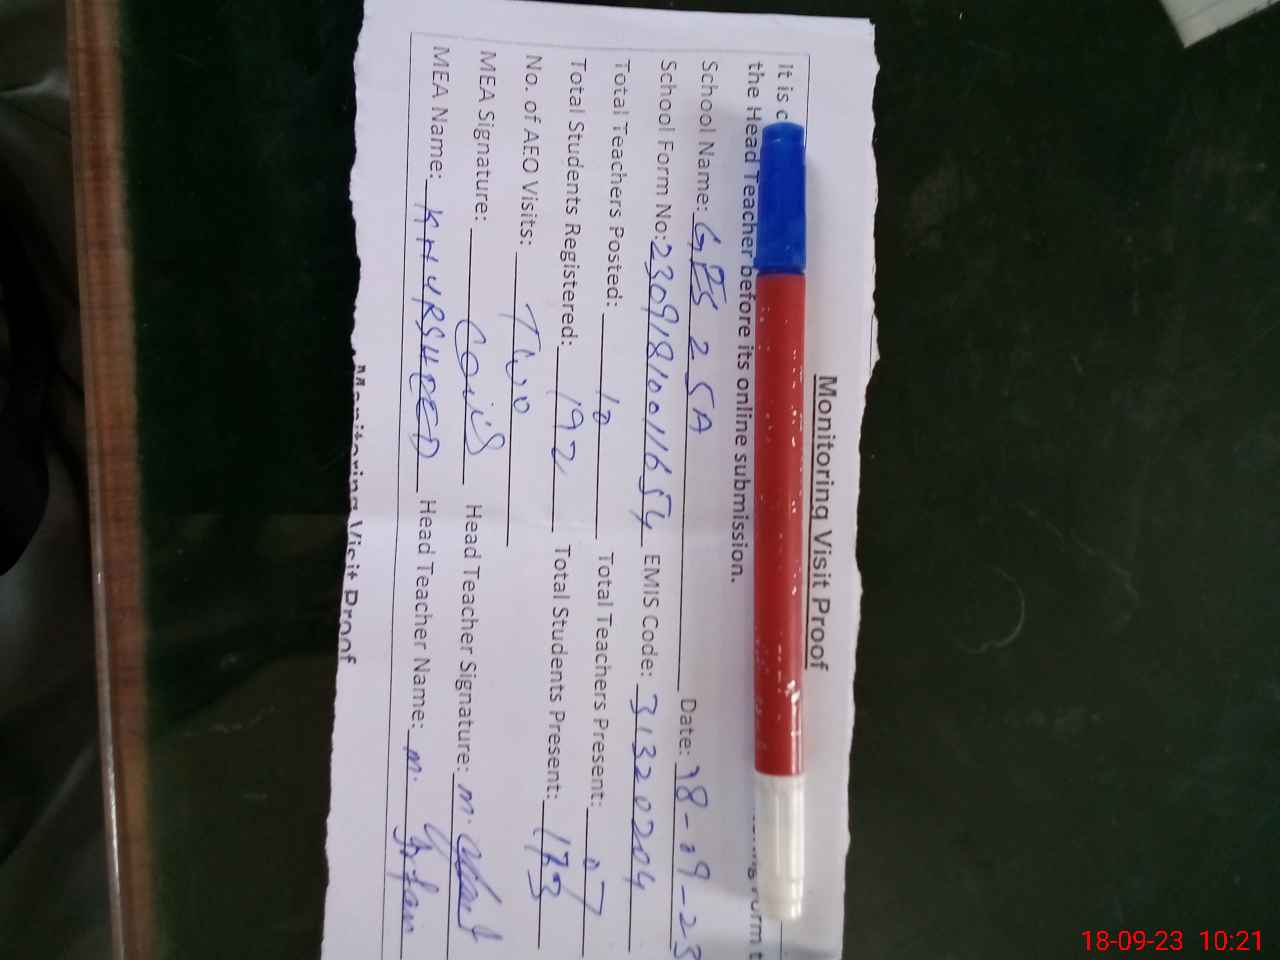 Monitoring Visit Proof
It is
the Head Teacher before its online submission.
School Name: GES 25A Date: 18-09-23
School Form No: 23091810011654 EMIS Code: 31320204
Total Teachers Posted: 10 Total Teachers Present: 07
Total Students Registered: 192 Total Students Present: 173
No. of AEO Visits: Two
MEA Signature: Head Teacher Signature: M.
MEA Name: KHURSHEED Head Teacher Name: M. Irfan
Monitoring Visit Proof
18-09-23 10:21